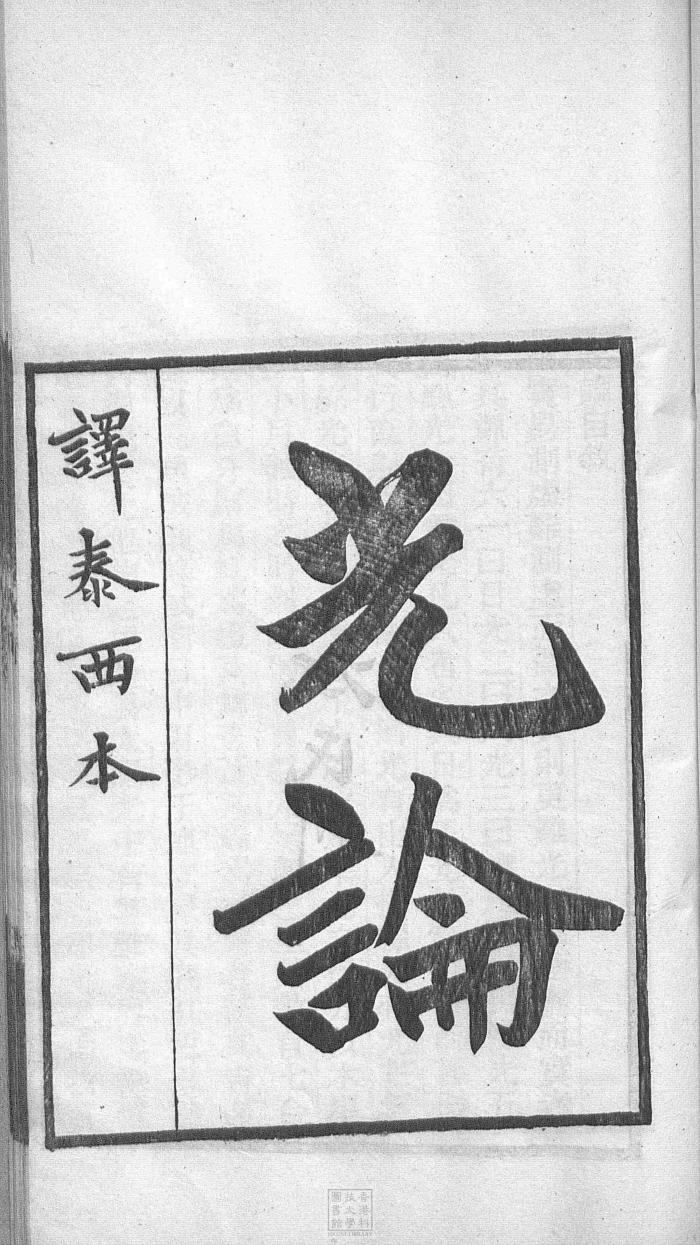 光論
譯泰西本
香港科
技大學
圖書館